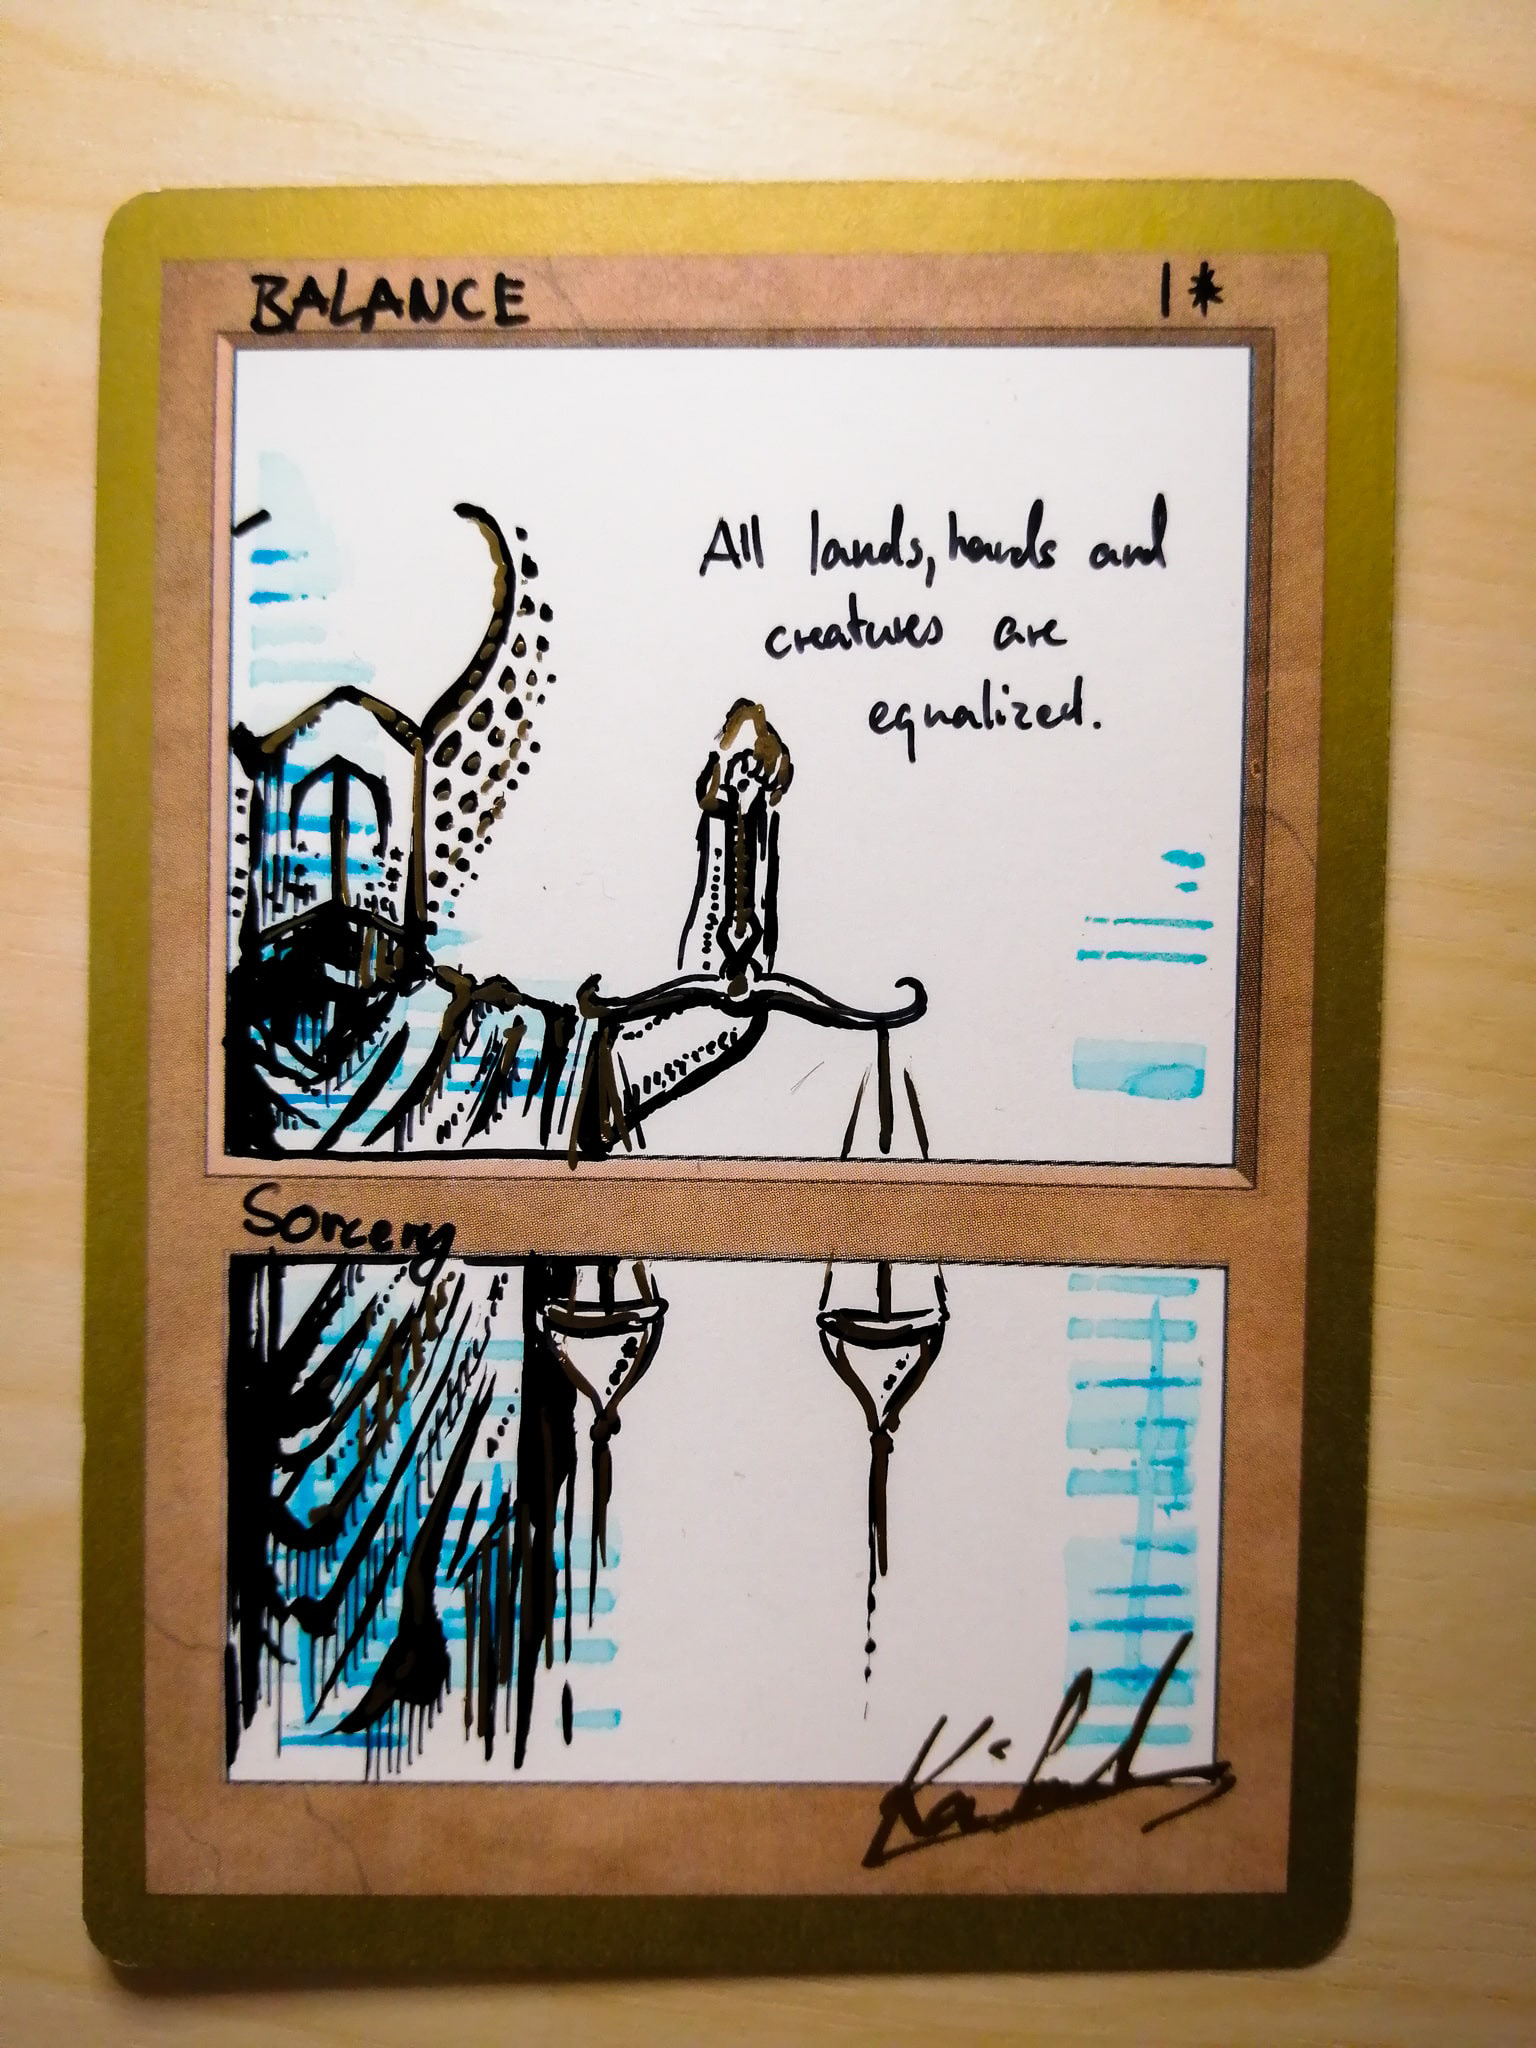 BALANCE 1*
All lands, hands and
creatures are
equalized.
Sorcery